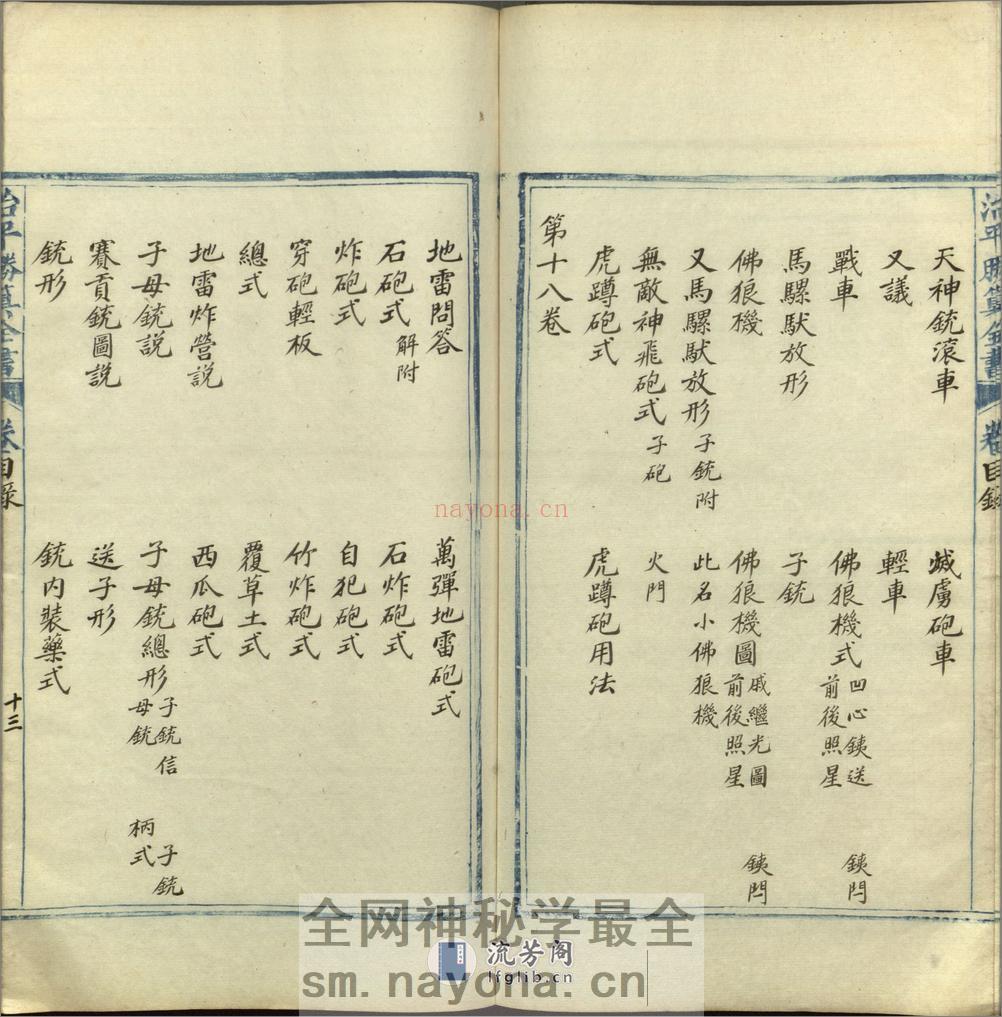 治平勝算全書 卷 目錄
天神銃滾車 滅虜砲車
又議 輕車
戰車 佛狼機式 凹心鐵送 前後照星 鐵閂
馬騾馱放形 子銃
佛狼機 佛狼機圖 戚繼光圖 前後照星 鐵閂
又馬騾馱放形 子銃附 此名小佛狼機
無敵神飛砲式 子砲 火門
虎蹲砲式 虎蹲砲用法
第十八卷
地雷問答 萬彈地雷砲式
石砲式 解附 石炸砲式
炸砲式 自犯砲式
穿砲輕板 竹炸砲式
總式 覆草土式
地雷炸營説 西瓜砲式
子母銃説 子母銃總形 子銃信 母銃 子銃 柄式
賽貢銃圖説 送子形
銃形 銃内裝藥式
治平勝算全書 卷 目錄 十三
nayona.cn
全网神秘学最全
流芳阁
lfglib.cn
sm.nayona.cn